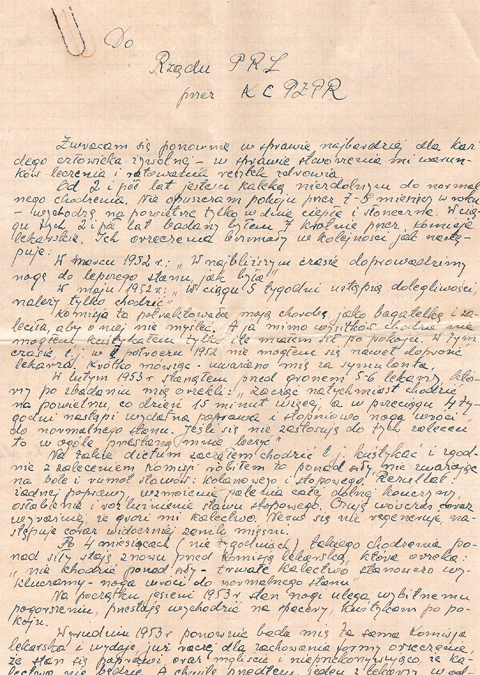 Do
Rządu PRL
przez KC PZPR
Zwracam się ponownie w sprawie najbardziej dla każ
dego człowieka żywotnej – w sprawie stworzenia mi warun-
ków leczenia i ratowania resztek zdrowia.
Od 2 i pół lat jestem kaleką niezdolnym do normal
nego chodzenia. Nie opuszczam pokoju przez 7-8 miesięcy w roku
– wychodzę na powietrze tylko w dnie ciepłe i słoneczne. W cią
gu tych 2 i pół lat badany byłem 7 krotnie przez komisje
lekarskie. Ich orzeczenia brzmiały w kolejności jak nastę-
puje:
W marcu 1952 r.: „W najbliższym czasie doprowadzimy
nogę do lepszego stanu, jak była"
W maju 1952 r.: „W ciągu 5 tygodni ustąpią dolegliwości
należy tylko chodzić"
Komisja ta potraktowała moją chorobę jako bagatelkę i za-
leciła, aby o niej nie myśleć. A ja mimo wysiłków chodzić nie
mogłem kuśtykałem tylko ile musiałem się po pokoju. W tym
czasie t.j. w I półroczu 1952 nie mogłem się nawet doprosić
lekarza. Krótko mówiąc – uważano mię za symulanta.
W lutym 1953 r stanąłem przed gronem 5-6 lekarzy, któ-
rzy po zbadaniu mię orzekli: „Zacząć natychmiast chodzić
na powietrzu, co dzień 15 minut więcej, a w przeciągu 4 ty-
godni nastąpi wydatna poprawa i stopniowo noga wróci
do normalnego stanu. Jeśli się nie zastosuję do tych zaleceń
to w ogóle przestaną mnie leczyć"
Na takie dictum zacząłem chodzić t.j. kuśtykać i zgod-
nie z zaleceniem Komisji robiłem to ponad siły, nie zważając
na bóle i rumot stawów: kolanowego i stopowego. Rezultat:
żadnej poprawy, wzmożenie palenia całej dolnej kończyny,
osłabienie i rozluźnienie stawu stopowego. Czuję wówczas coraz
wyraźniej, że grozi mi kalectwo. Nerw się nie regeneruje, na-
stępuje coraz widoczniej zanik mięśni.
Po 4 miesiącach (nie tygodniach) takiego chodzenia po-
nad siły staję znowu przed komisją lekarską, która orzeka:
„nie chodzić ponad siły – trwałe kalectwo stanowczo wy-
kluczamy – noga wróci do normalnego stanu"
Na początku jesieni 1953 r stan nogi ulega wybitnemu
pogorszeniu, przestaję wychodzić na spacery, kuśtykam po po-
koju.
W grudniu 1953 r ponownie bada mię ta sama Komisja
lekarska i wydaje, już raczej dla zachowania formy orzeczenie,
że stan się poprawi oraz mgliście i nieprzekonywująco, że ka-
lectwa nie będzie. A chwilę przedtem jeden z lekarzy w od-